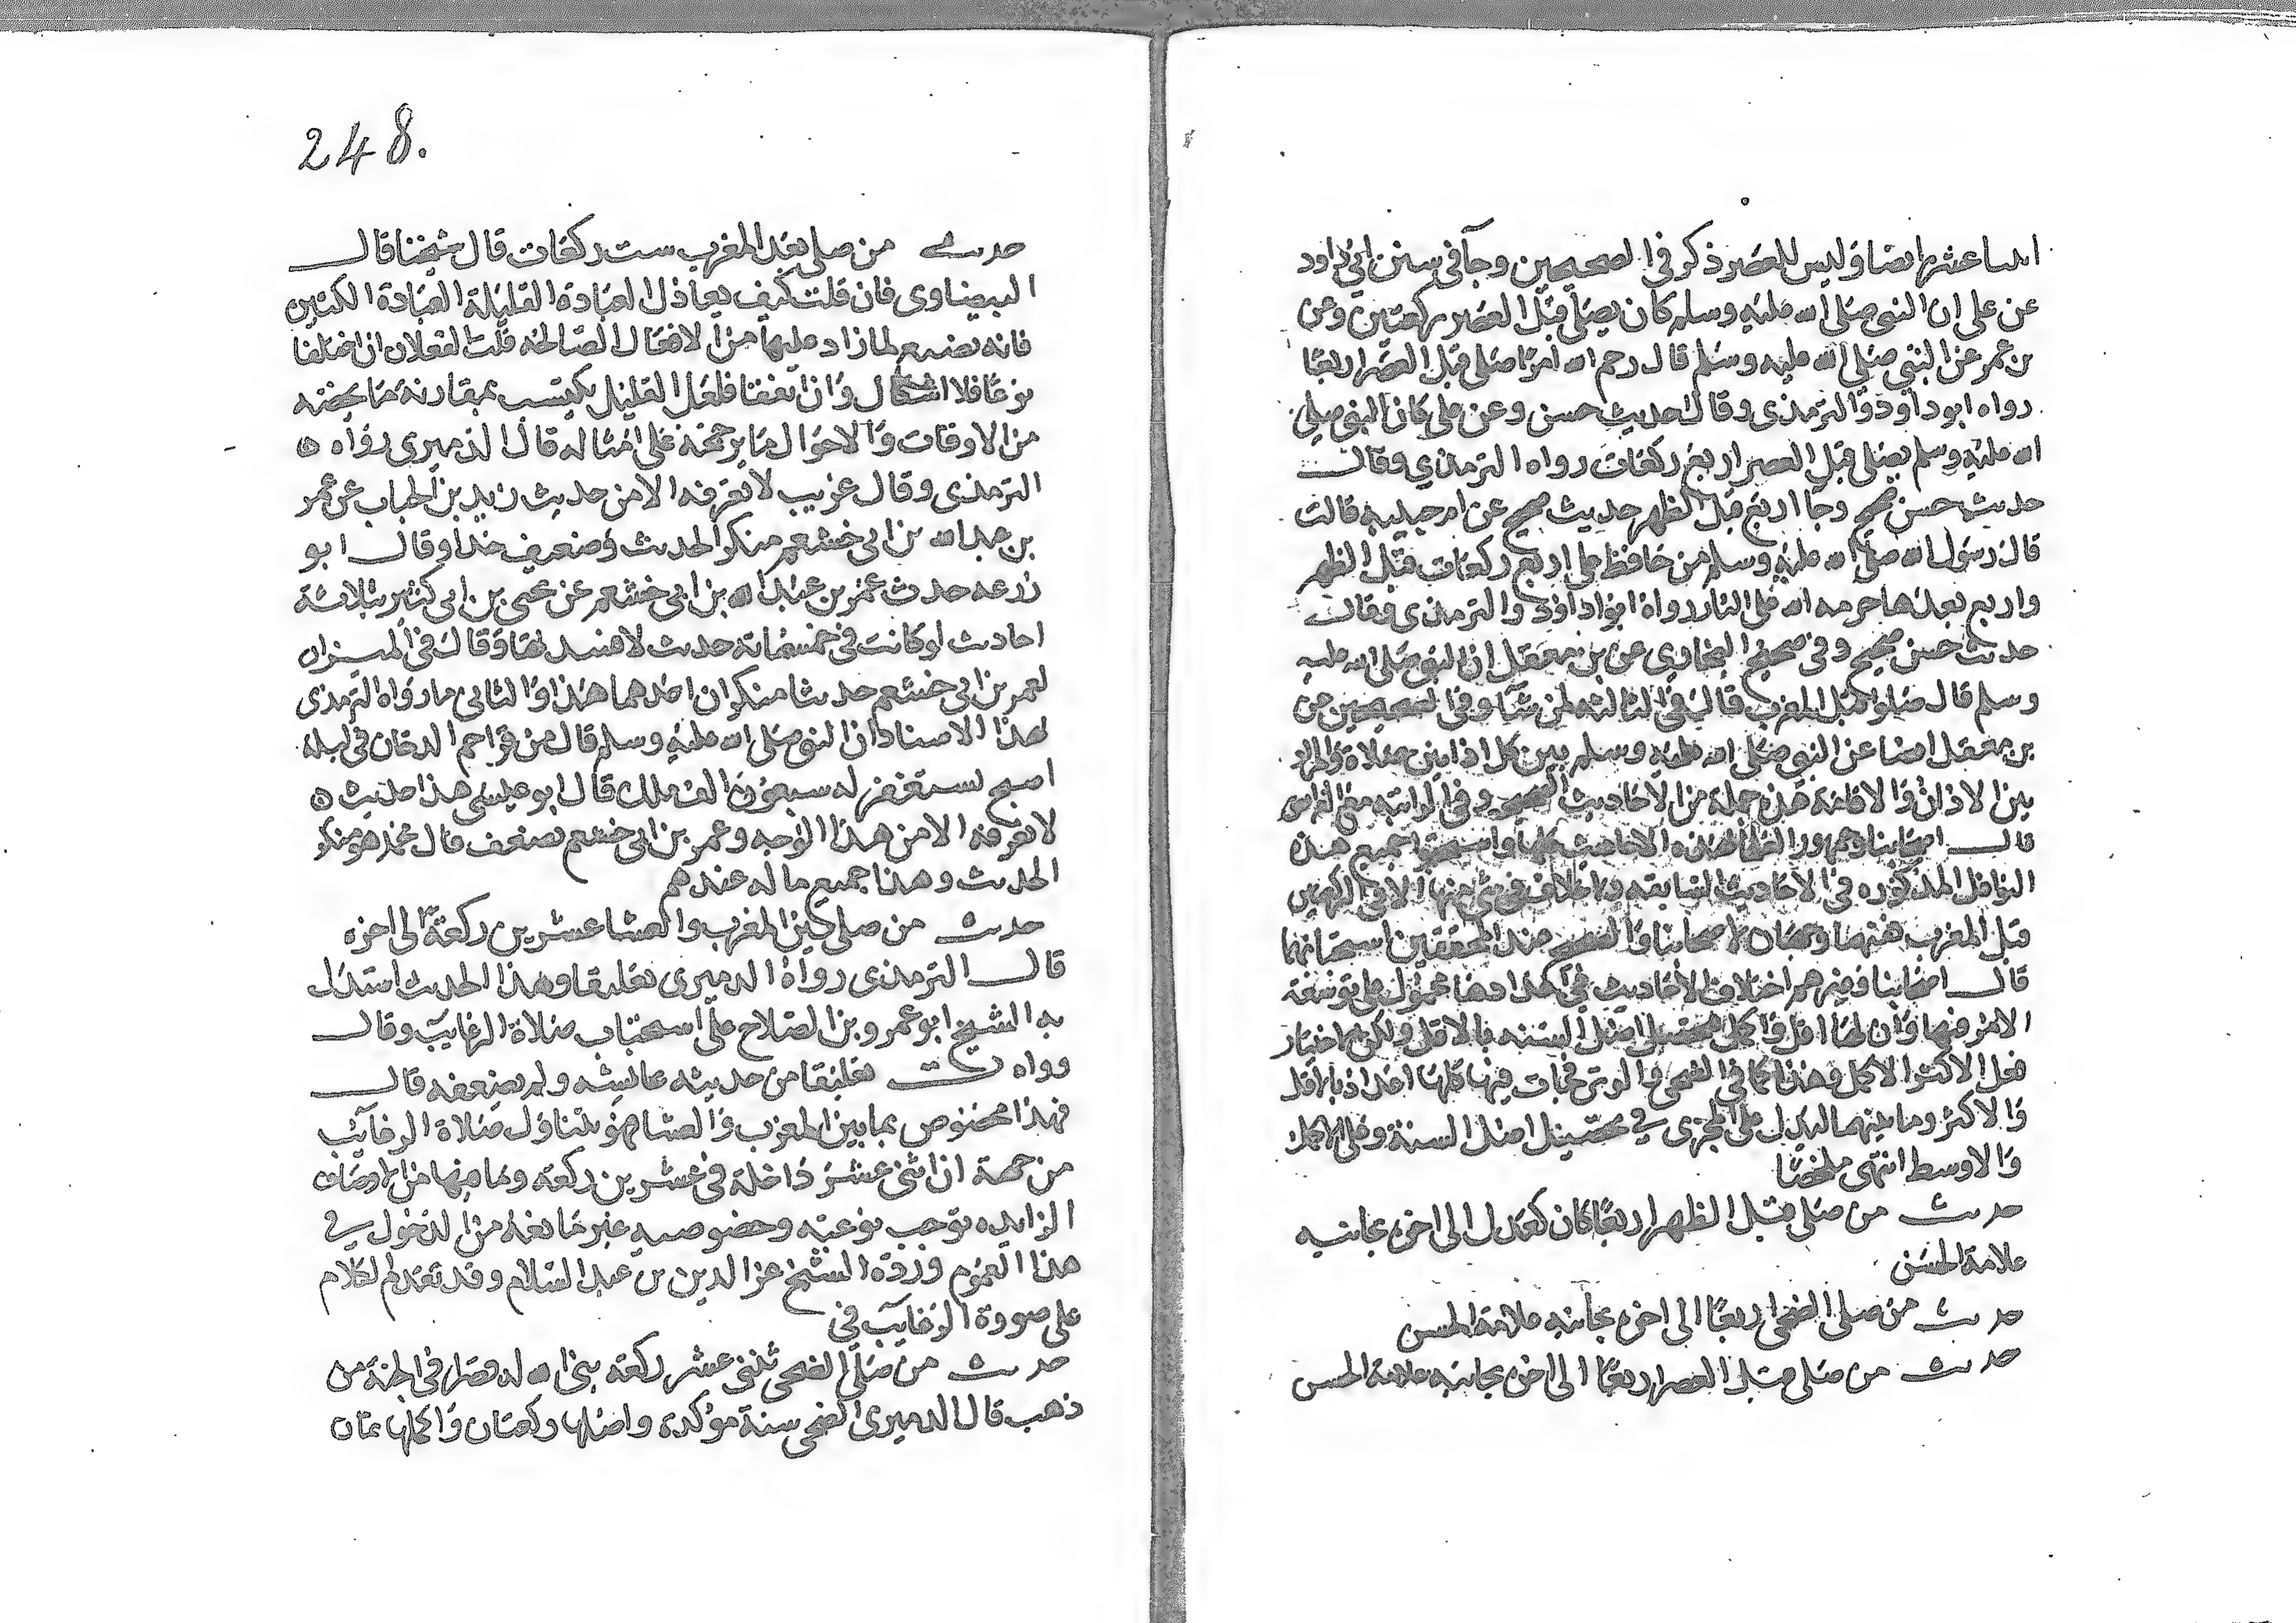 اثنا عشر ايضا وليس للعصر ذكر في الصحيحين وجآ في سنن ابي داود
عن علي ان النبي صلى الله عليه وسلم كان يصلي قبل العصر ركعتين وعن
بن عمر عن النبي صلى الله عليه وسلم قال رحم الله امرا صلى قبل العصر اربعا
رواه ابو داود والترمذي وقال حديث حسن وعن علي كان النبي صلى
الله عليه وسلم يصلي قبل العصر اربع ركعات رواه الترمذي وقال
حديث حسن صحيح وجا اربع قبل الظهر حديث صحيح عن ام حبيبه قالت
قال رسول الله صلى الله عليه وسلم من حافظ على اربع ركعات قبل الظهر
واربع بعدها حرمه الله على النار رواه ابو داود والترمذي وقال
حديث حسن صحيح وفي صحيح البخاري عن بن مغفل ان النبي صلى الله عليه
وسلم قال صلوا قبل المغرب قال في الثالثه لمن شآ وفي الصحيحين عن
بن مغفل ايضا عن النبي صلى الله عليه وسلم بين كل اذانين صلاة والمراد
بين الاذان والاقامة فهذه جملة من الاحاديث الصحيح وفي الراتبه مع الفرايض
قال اصحابنا وجمهور العلما بهذه الاحاديث كلها واستحبوا جميع هذه
النوافل المذكوره في الاحاديث السابقه ولا خلاف في شي منها الا في الركعتين
قبل المغرب ففيهما وجهان لاصحابنا والصحيح عند المحققين استحبابهما
قال اصحابنا وغيرهم اختلاف الاحاديث في اعدادها محمول على توسعة
الامر فيها وان لها اقل واكمل فيحصل اصل السنه بالاقل ولكن الاختيار
فعل الاكثر الاكمل وهذا كما في الضحى والوتر فجات فيها كلها اعداد بالاقل
والاكثر وما بينهما ليدل على المجزي في تحصيل اصل السنة وعلى الاكمل
والاوسط انتهى ملخصا
حديث من صلى قبل الظهر اربعا كان كعدل الى اخره بجانبه
علامة الحسن
حديث من صلى الضحى اربعا الى اخره بجانبه علامة الحسن
حديث من صلى قبل العصر اربعا الى اخره بجانبه علامة الحسن
248.
حديث من صلى بعد المغرب ست ركعات قال شيخنا قال
البيضاوى فان قلت كيف يعادل العبادة القليلة العبادة الكثيرة
فانه تضييع لما زاد عليها من الافعال الصالحه قلت الفعلان ان اختلفا
نوعا فلا اشكال وان اتفقا فلعل القليل يكتسب بمقارنة ما يخصه
من الاوقات والاحوال ما يرجحه على امثاله قال الدميرى رواه
الترمذى وقال غريب لا نعرفه الا من حديث زيد بن الحباب عن عمر
بن عبد الله بن ابى خثعم منكر الحديث وضعيف جدا وقال ابو
زرعه حدث عمر بن عبد الله بن ابى خثعم عن يحيى بن ابى كثير بثلاثة
احاديث لو كانت في خمسمائة حديث لافسدتها وقال في الميزان
لعمر بن ابى خثعم حديثا منكران احدهما هذا والثانى ما رواه الترمذى
بهذا الاسناد ان النبى صلى الله عليه وسلم قال من قرا حم الدخان في ليلة
اصبح يستغفر له سبعون الف ملك قال ابو عيسى هذا حديث
لا نعرفه الا من هذا الوجه وعمر بن ابى خثعم يضعف قال محمد هو منكر
الحديث وهذا جميع ما له عندهم
حديث من صلى بين المغرب والعشا عشرين ركعة الى اخره
قال الترمذى رواه الدميرى تعليقا وهذا الحديث استدل
به الشيخ ابو عمرو بن الصلاح على استحباب صلاة الرغايب وقال
رواه ت تعليقا من حديث عائشه ولم يضعفه قال
فهذا مخصوص بما بين المغرب والعشا فهو يتناول صلاة الرغآيب
من جهة ان اثنى عشر داخلة في عشرين ركعة وما فيها من الاوصاف
الزايده توجب نوعيه وخصوصيه غير مانعة من الدخول في
هذا العموم ورده الشيخ عز الدين بن عبد السلام وقد تقدم الكلام
على صورة الرغآيب في
حديث من صلى الضحى ثنتى عشر ركعة بنى الله له قصرا في الجنة من
ذهب قال الدميرى الضحى سنة مؤكدة واقلها ركعتان واكملها ثمان